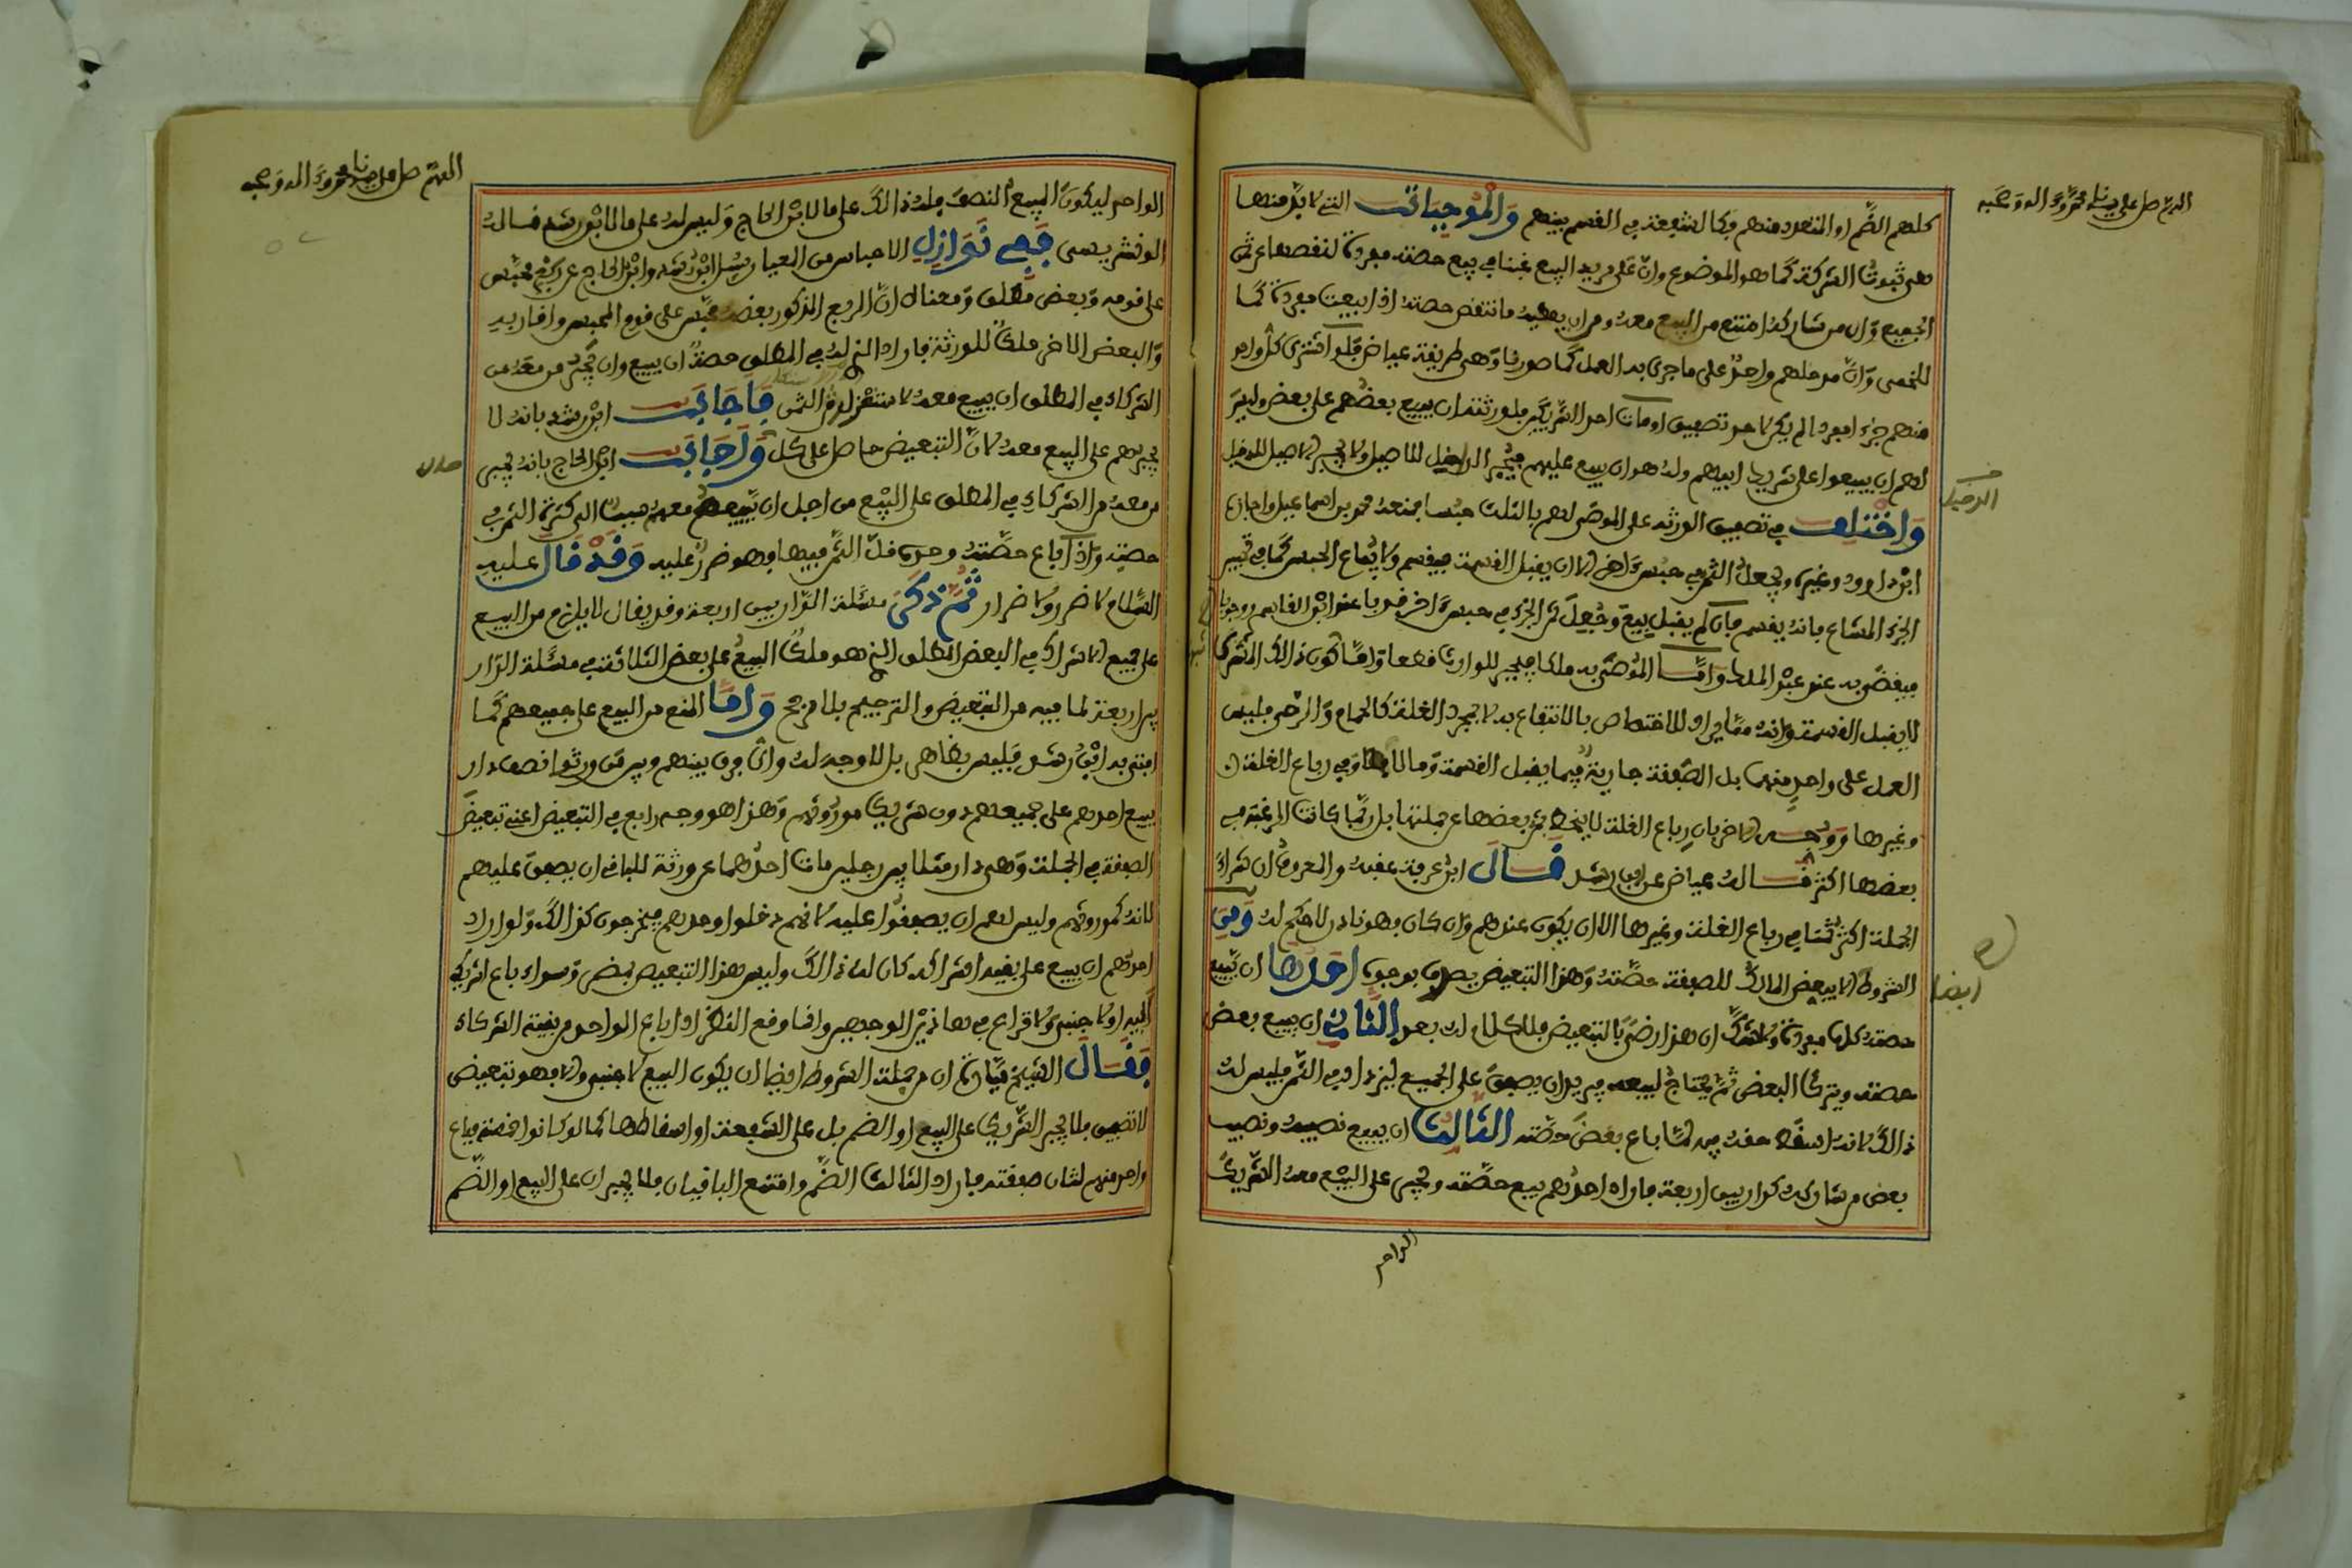 اللهم صل على سيدنا محمد وءاله وصحبه
كلهم الضم او المتعدد منهم وكالشفعة في القسم بينهم وَالْمُوجِبَاتُ التي لا بد منها
هي ثبوت الشركة كما هو الموضوع وان على مريد البيع غبنا في بيع حصته مفردة لنقصها عن ثمن
الجميع وان من شاركه امتنع من البيع معه ومن ان يعطيه ما نقص حصته اذا بيعت مفردة كما
للخمي وان مدخلهم واحد على ما جرى به العمل كما صورنا وهي طريقة عياض فلو اشترى كل واحد
منهم جزءا مفردا لم يكن لاحد تصفيق او مات احد الشريكين فلورثته ان يبيع بعضهم على بعض وليس
لهم ان يبيعوا على شريك ابيهم وله هو ان يبيع عليهم فيجبر الدخيل للاصيل ولا يجبر الاصيل للدخيل
الدخيل
وَاخْتُلِفَ في تصفيق الورثة على الموصى لهم بالثلث حبسا فمنعه محمد بن اسماعيل واجازه
ابن داوود وغيره ويجعل الثمن في حبس ءاخر الا ان يقبل القسمة فيقسم ولا يباع الحبس كما في تحبيس
الجزء المشاع فانه يقسم فان لم يقبل بيع وجعل ثمن الجزء في حبس ءاخر
لا يقبل القسمة وانه مما يراد للاختصاص بالانتفاع به لا لمجرد الغلة كالحمام والرحى فليس
العمل على واحد منهما بل الصفقة جارية فيما يقبل القسمة وما لا وفي رباع الغلة
وغيرها ووجه الاخر بان رباع الغلة لا ينحط ثمن بعضها عن جملتها بل ربما كانت الرغبة في
بعضها اكثر قاله عياض عن ابن رشد قَالَ ابن عرفة عقبه والمعروف ان شراء
الجملة اكثر ثمنا في رباع الغلة وغيرها الا ان يكون عندهم وان كان فهو نادر لا حكم له وَمِنَ
الشروط الا يبعض المالك للصفقة حصته وهذا التبعيض يصدق بوجوه احَدهَا ان يبيع
ايضا
حصته كلها مفردة ولا شك ان هذا رضى بالتبعيض فلا كلام له بعد الثَّانِي ان يبيع بعض
حصته ويترك البعض ثم يحتاج لبيعه فيريد ان يصفق على الجميع ليزداد في الثمن فليس له
ذالك لانه اسقط حقه فيه لما باع بعض حصته الثَّالِثُ ان يبيع نصيبه ونصيب
بعض من شاركه كدار بين اربعة فاراد احدهم بيع حصته ويجبر على البيع معه الشريك
الواحد
اللهم صل على سيدنا محمد وءاله وصحبه
الواحد ليكون المبيع النصف فله ذالك على ما لابن الحاج وليس له على ما لابن رشد قاله
الونشريسي فَفِي نَوَازِلِ الاحباس من المعيار سئل ابن رشد وابن الحاج عن ربع محبس
على قوم وبعض مطلق ومعناه ان الربع المذكور بعضه محبس على قوم المحبس واقاربه
والبعض الاخر ملك للورثة فاراد الذي له في المطلق حصة ان يبيع وان يجبر من معه من
الشركاء في المطلق ان يبيع معه لاستغزار الثمن فَاجَابَ ابن رشد بانه لا
يجبرهم على البيع معه لان التبعيض حاصل على كل وَاَجَابَ ابن الحاج بانه يجبر
من معه من الشركاء في المطلق على البيع من اجل ان بيعهم معه سبب الى كثرة الثمن في
حصته واذا باع حصته وحده قل الثمن فيها وهو ضرر عليه وَقَدْ قَالَ عليه
السلام لا ضرر ولا ضرار ثُمَّ ذَكَرَ مسئلة الدار بين اربعة وقد يقال لا يلزم من البيع
على جميع الاشراك في البعض المطلق الذي هو ملك البيع على بعض الثلاثة في مسئلة الدار
بين اربعة لما فيه من التبعيض والترجيح بلا مرجح وَاَمَّا المنع من البيع على جميعهم كما
افتى به ابن رشد فليس بظاهر بل لا وجه له وان فرق بينهم وبين من ورثوا نصف دار
يبيع احدهم على جميعهم دون شريك موروثهم وهذا هو وجه رابع في التبعيض اعني تبعيض
الصفقة في الجملة وهي دار مثلا بين رجلين مات احدهما عن ورثة للباقي ان يصفق عليهم
لانه كموروثهم وليس لهم ان يصفقوا عليه لانهم دخلوا وحدهم فيخرجون كذالك ولو اراد
احدهم ان يبيع على بقية اشراكه كان له ذالك وليس هذا التبعيض بمضر وسواء باع لشريك
ابيه او لاجنبي ولا قراع في هاذين الوجهين وانما وقع النظر اذا باع الواحد من بقية الشركاء
فَقَالَ الشيخ ميارة ان من جملة الشروط ايضا ان يكون البيع لاجنبي والا فهو تبعيض
لا تصفيق فلا يجبر الشريك على البيع او الضم بل على الشفعة او اسقاطها كما لو كانوا خمسة فباع
واحد منهم لثان صفقته فاراد الثالث الضم وامتنع الباقيان فلا يجبران على البيع او الضم